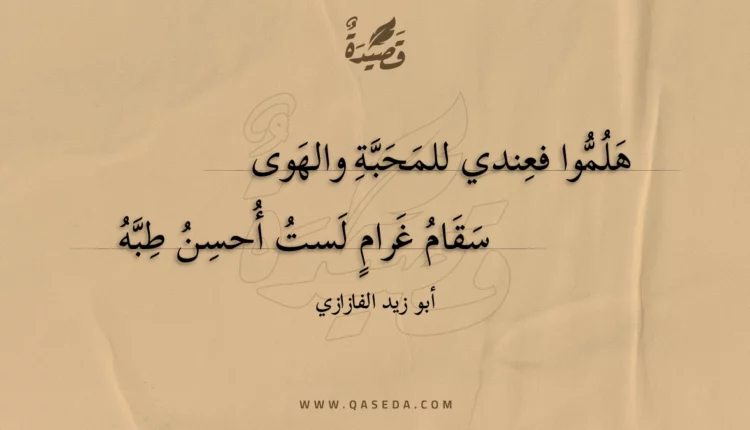 قَصِيْدَةٌ
هَلُمُّوا فعِندي للمَحَبَّةِ والهَوى
سَقَامُ غَرامٍ لَستُ أُحسِنُ طِبَّهُ
أبو زيد الفازازي
WWW.QASEDA.COM